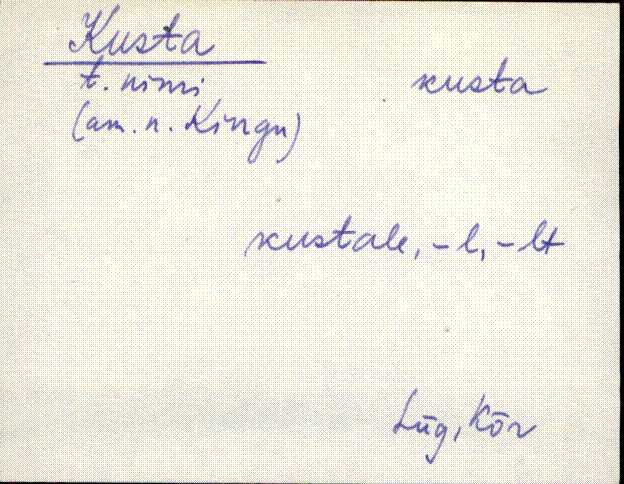 Kusta
t. nimi
kusta
(am. n. Kingu)
kustale, -l, -lt
Lüg, Kõr